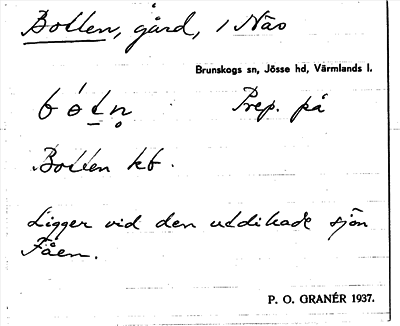 Botten, gård, i Näs
Brunskogs sn, Jösse hd, Värmlands l.
bótn̥ Prep. på
Botten kb.
Ligger vid den utdikade sjön
Fåen.
P. O. GRANÉR 1937.